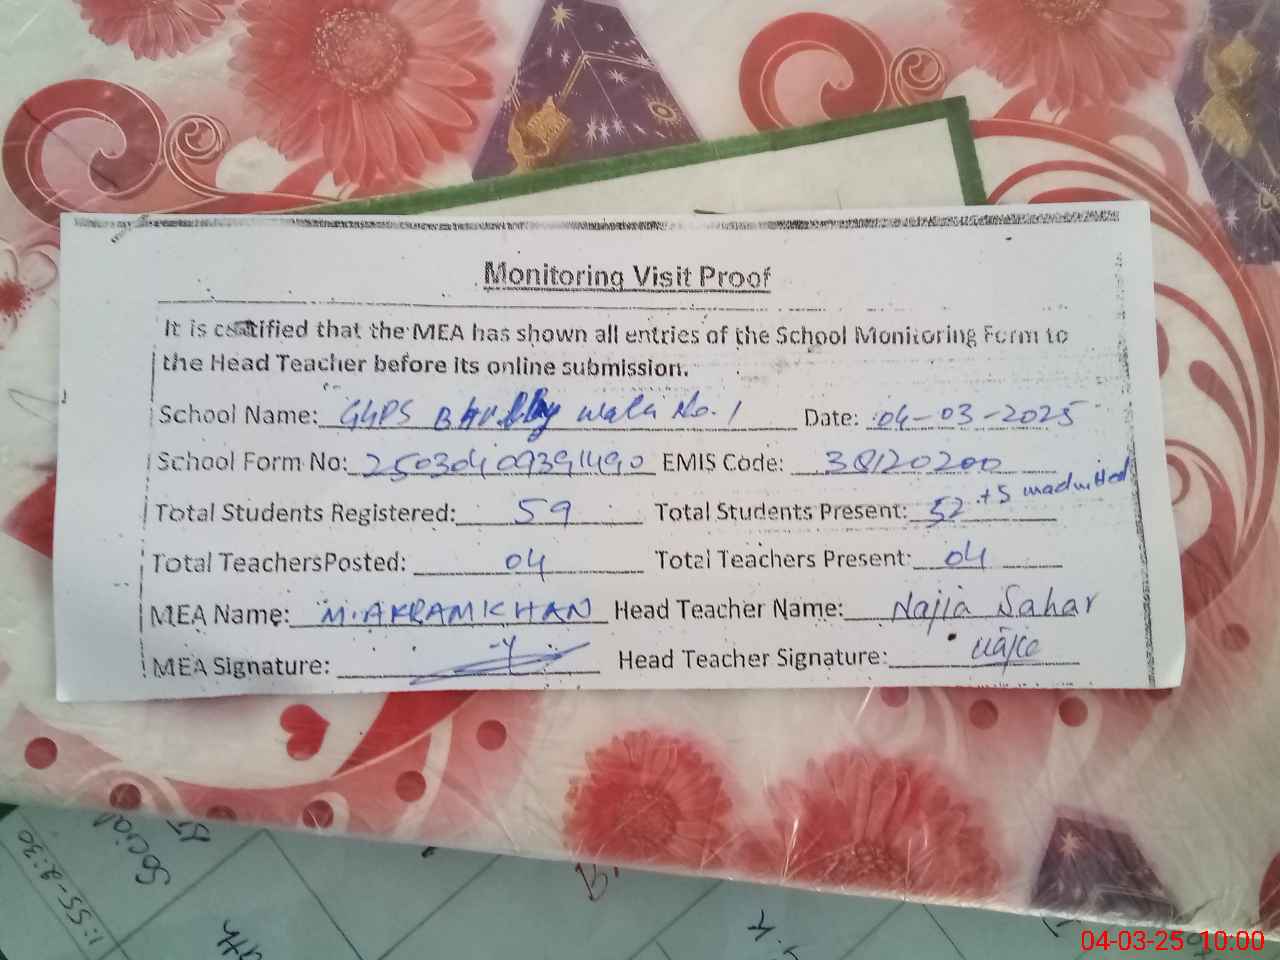 Monitoring Visit Proof
It is certified that the MEA has shown all entries of the School Monitoring Form to
the Head Teacher before its online submission.
School Name: GGPS wala No. 1 Date: 04-03-2025
School Form No: 25030409391490 EMIS Code: 38120200
Total Students Registered: 59 Total Students Present: 52 +5 unadmitted
Total TeachersPosted: 04 Total Teachers Present: 04
MEA Name: M.AKRAM KHAN Head Teacher Name: Najia Sahar
MEA Signature: Head Teacher Signature:
Social
1:55-2:30
04-03-25 10:00